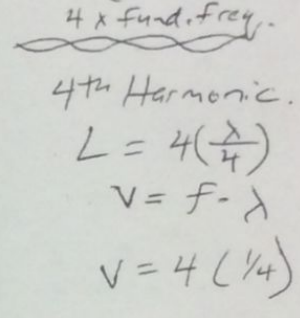 4 x fund. freq.
4th Harmonic.
L = 4(λ/4)
V = f - λ
V = 4 (1/4)